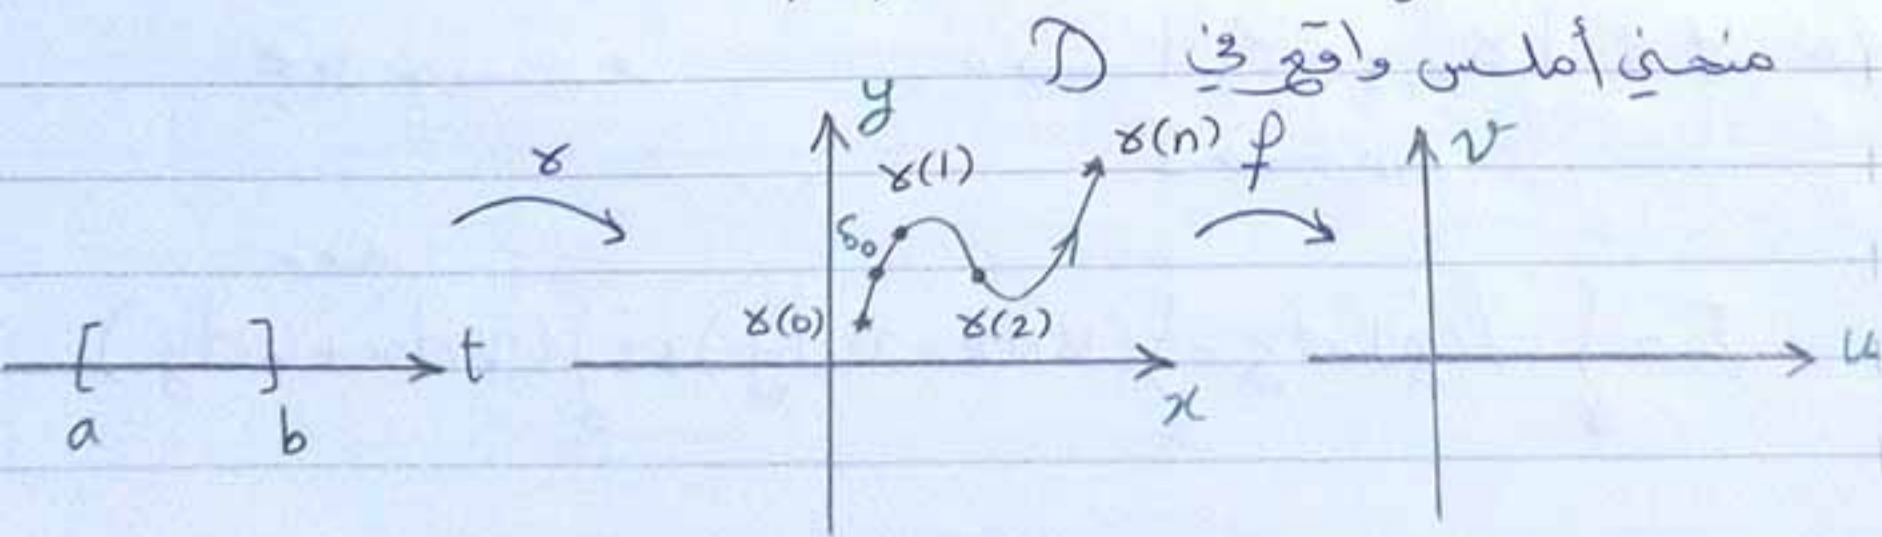 منحني أملس واقع في D
y
γ
γ(1)
γ(n)
f
v
δ₀
γ(0)
γ(2)
t
x
u
a
b